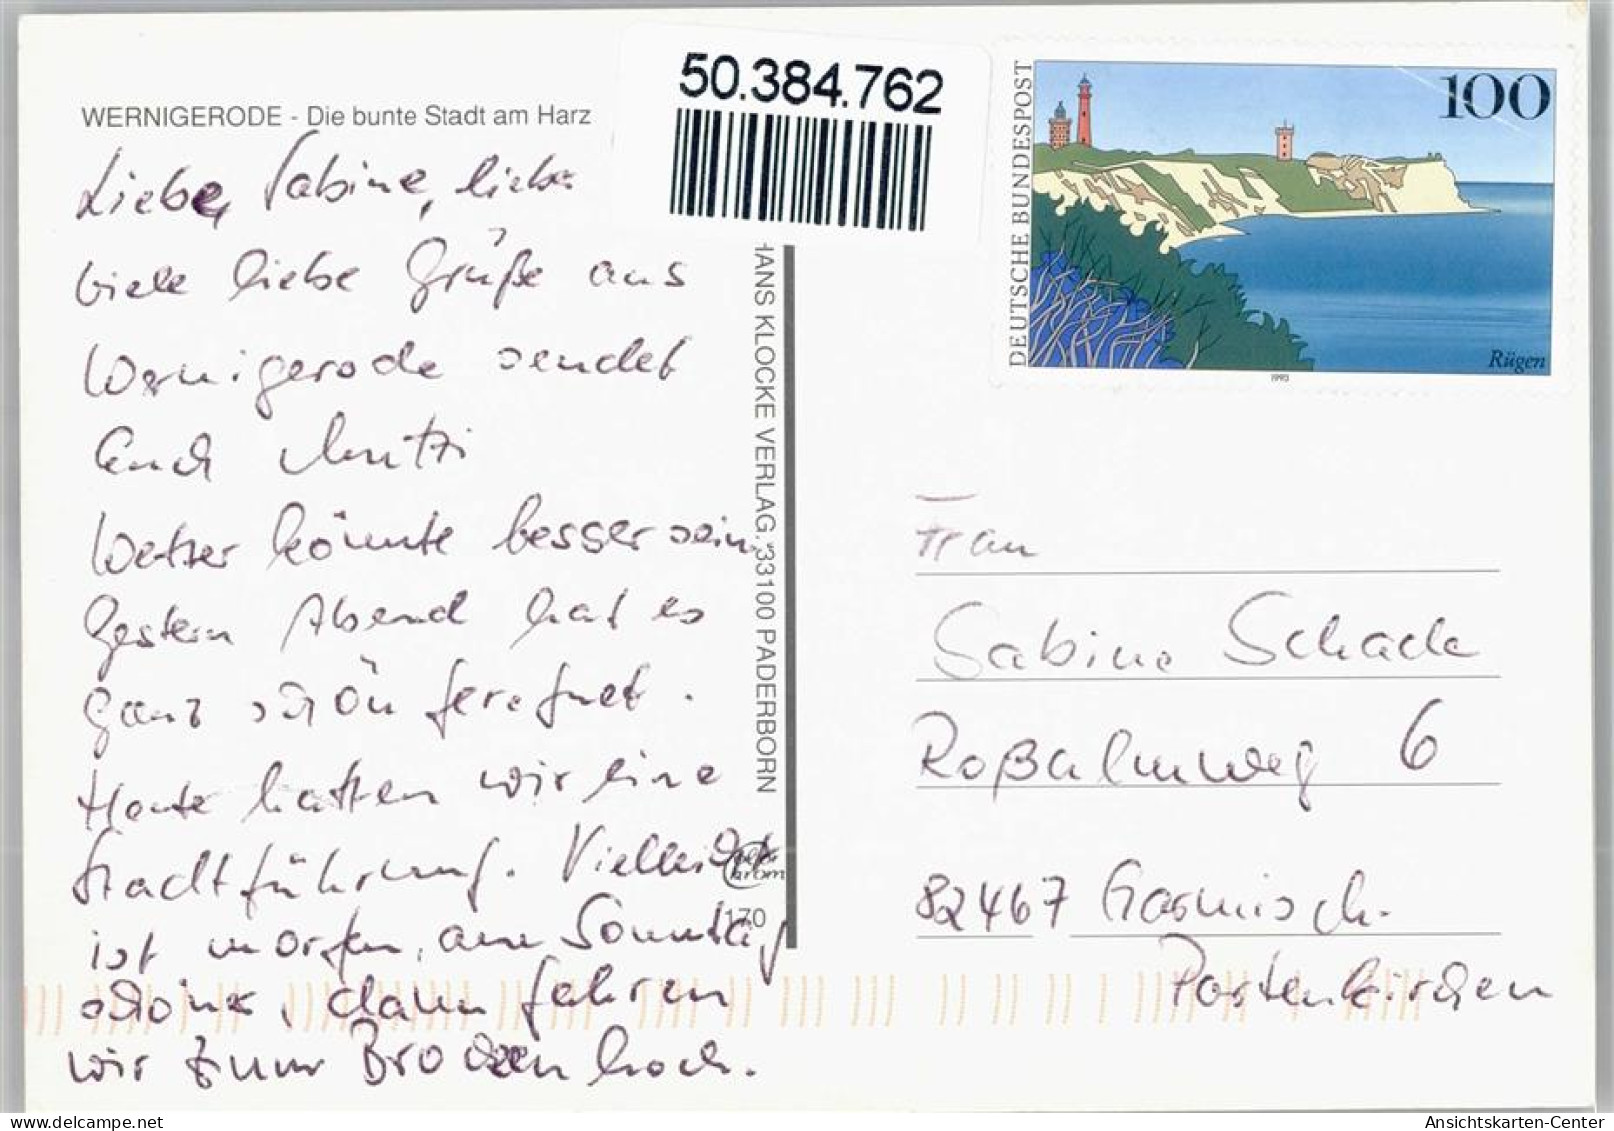 WERNIGERODE - Die bunte Stadt am Harz
50.384.762
Liebe Sabine, liebe
viele liebe Grüße aus
Wernigerode sendet
Euch Mutti
Wetter könnte besser sein.
Gestern Abend hat es
ganz schön geregnet.
Heute hatten wir eine
Stadtführung. Vielleicht
ist morgen, am Sonntag
schöner, dann fahren
wir zum Brocken hoch.
HANS KLOCKE VERLAG, 33100 PADERBORN
170
DEUTSCHE BUNDESPOST
100
Rügen
1993
Frau
Sabine Schade
Roßalmweg 6
82467 Garmisch-
Partenkirchen
Ansichtskarten-Center